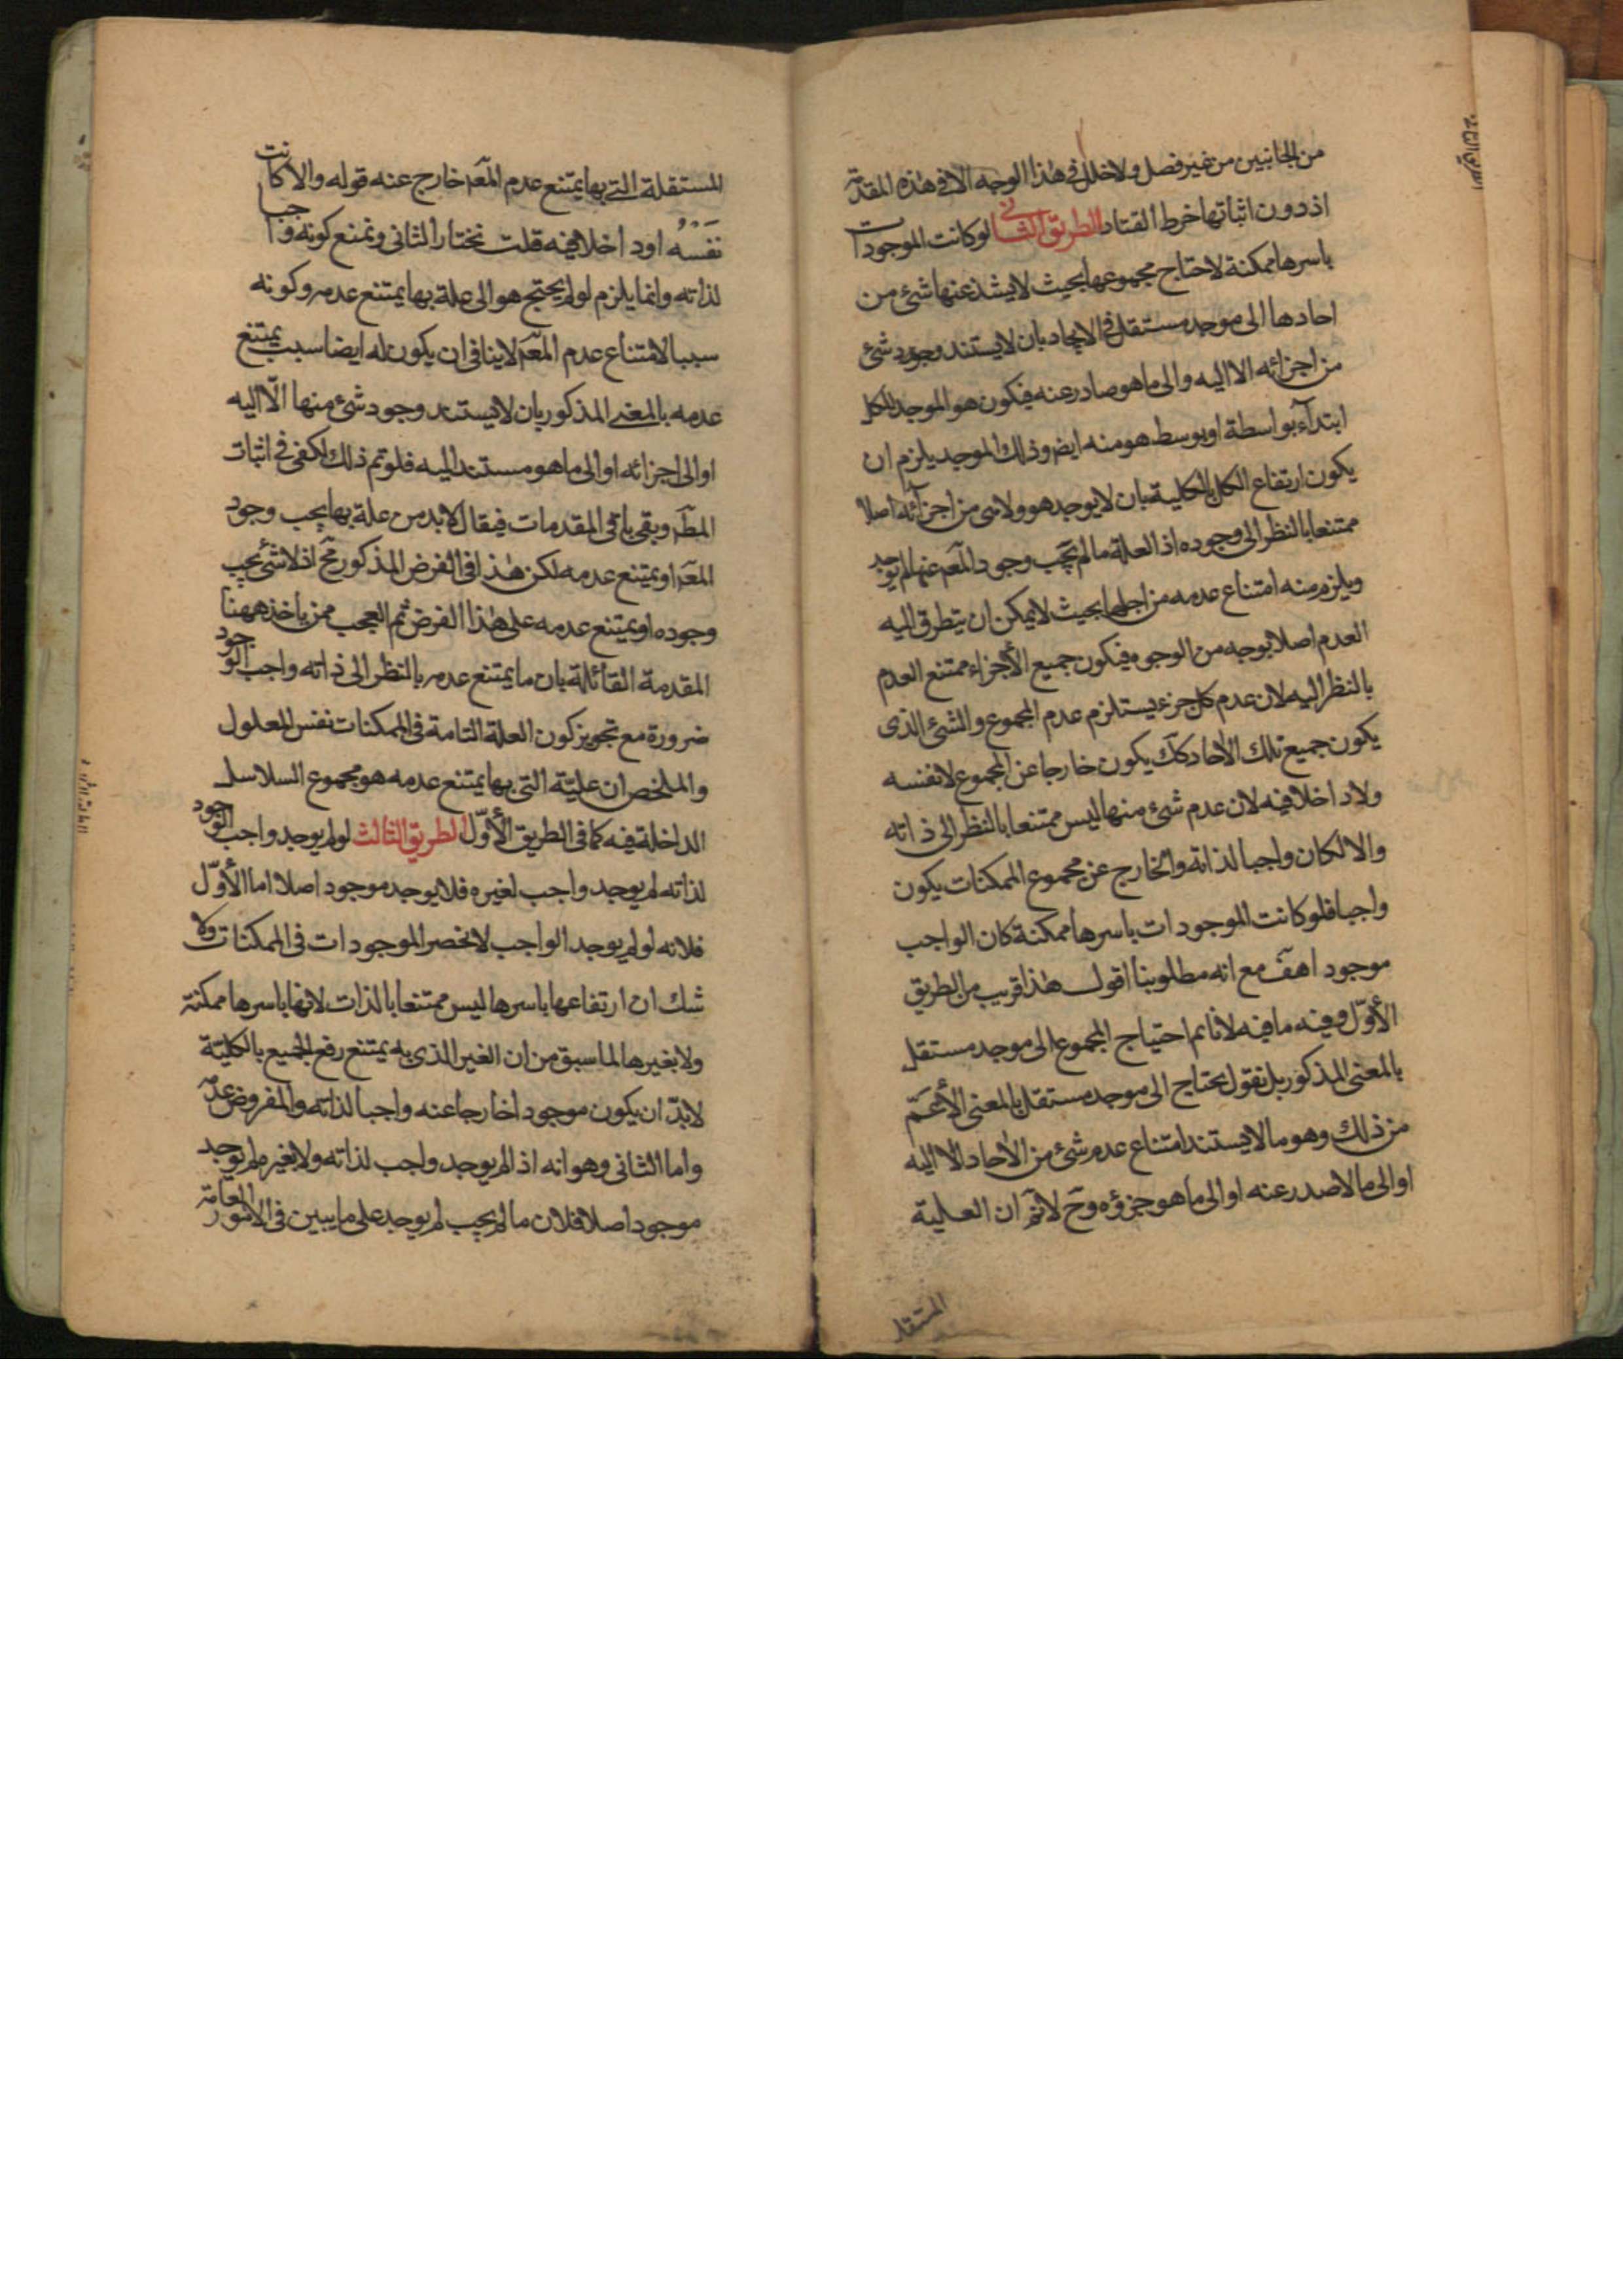 من الجانبين من غير فصل ولا خلل في هذا الوجه الا في هذه المقدمة
اذ دون اثباتها خرط القتاد الطريق الثاني لو كانت الموجودات
باسرها ممكنة لاحتاج مجموعها بحيث لا يشذ عنها شئ من
احادها الى موجد مستقل في الايجاد بان لا يستند وجود شئ
من اجزائه الا اليه والى ما هو صادر عنه فيكون هو الموجد للكل
ابتدآء بواسطة او بوسط هو منه ايض وذلك الموجد يلزم ان
يكون ارتفاع الكل بالكلية بان لا يوجد هو ولا شئ من اجزآئه اصلا
ممتنعا بالنظر الى وجوده اذ العلة ما لم يجب وجود المعم عنها لم يوجد
ويلزم منه امتناع عدمه من اجلها بحيث لا يمكن ان يتطرق اليه
العدم اصلا بوجه من الوجوه فيكون جميع الأجزاء ممتنع العدم
بالنظر اليه لان عدم كل جزء يستلزم عدم المجموع والشئ الذى
يكون جميع تلك الاحاد كك يكون خارجا عن المجموع لا نفسه
ولا داخلا فيه لان عدم شئ منها ليس ممتنعا بالنظر الى ذاته
والا لكان واجبا لذاته والخارج عن مجموع الممكنات يكون
واجبا فلو كانت الموجودات باسرها ممكنة كان الواجب
موجودا هف مع انه مطلوبنا اقول هذا قريب من الطريق
الأوّل وفيه ما فيه لانا نم احتياج المجموع الى موجد مستقل
بالمعنى المذكور بل نقول يحتاج الى موجد مستقل بالمعنى الأعمّ
من ذلك وهو ما لا يستند امتناع عدم شئ من الاحاد الا اليه
او الى ما لا صدر عنه او الى ما هو جزؤه وح لا نم ان العلية
المستقل
المستقلة التى بها يمتنع عدم المعم خارج عنه قوله والا كانت
نفسه او داخلا فيه قلت نختار الثانى ونمنع كونه واجبا
لذاته وانما يلزم لو لم يحتج هو الى علة بها يمتنع عدمه وكونه
سببا لامتناع عدم المعم لا ينافى ان يكون له ايضا سبب يمتنع
عدمه بالمعنى المذكور بان لا يستند وجود شئ منها الّا اليه
او الى اجزائه او الى ما هو مستند اليه فلو تم ذلك لكفى في اثبات
المط وبقى باقى المقدمات فيقال لا بد من علة بها يجب وجود
المعم او يمتنع عدمه لكن هذا فى الفرض المذكور مح اذ لا شئ يجب
وجوده او يمتنع عدمه على هذا الفرض ثم العجب ممن ياخذ ههنا
المقدمة القائلة بان ما يمتنع عدمه بالنظر الى ذاته واجب الوجود
ضرورة مع تجويز كون العلة التامة فى الممكنات نفس المعلول
والملخص ان عليّة التى بها يمتنع عدمه هو مجموع السلاسل
الداخلة فيه كما فى الطريق الأوّل الطريق الثالث لو لم يوجد واجب الوجود
لذاته لم يوجد واجب لغيره فلا يوجد موجود اصلا اما الأوّل
فلانه لو لم يوجد الواجب لانحصر الموجودات فى الممكنات ولا
شك ان ارتفاعها باسرها ليس ممتنعا بالذات لانها باسرها ممكنة
ولا بغيرها لما سبق من ان الغير الذى به يمتنع رفع الجميع بالكليّة
لا بدّ ان يكون موجودا خارجا عنه واجبا لذاته والمفروض عدمه
واما الثانى وهو انه اذا لم يوجد واجب لذاته ولا بغيره لم يوجد
موجود اصلا فلان ما لم يجب لم يوجد على ما يبين فى الامور العامة